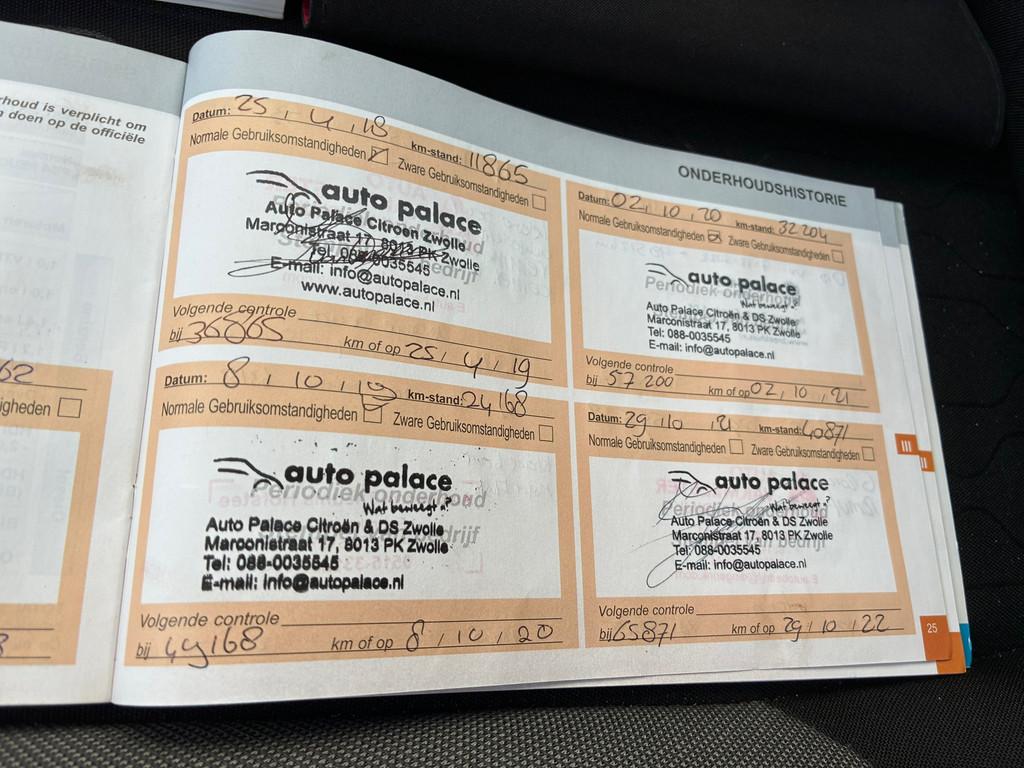 rhoud is verplicht om
doen op de officiële
62
igheden
ONDERHOUDSHISTORIE
Datum: 25 , 4 , 18 km-stand: 11865
Normale Gebruiksomstandigheden Zware Gebruiksomstandigheden
auto palace
Auto Palace Citroën Zwolle
Marconistraat 17, 8013 PK Zwolle
Tel: 088-0035545
E-mail: info@autopalace.nl
www.autopalace.nl
Volgende controle
bij 36865 km of op 25 , 4 , 19
Datum: 8 , 10 , 19 km-stand: 24168
Normale Gebruiksomstandigheden Zware Gebruiksomstandigheden
auto palace
Periodiek onderhoud
Wat beweegt u?
Auto Palace Citroën & DS Zwolle
Marconistraat 17, 8013 PK Zwolle
Tel: 088-0035545
E-mail: info@autopalace.nl
Volgende controle
bij 49168 km of op 8 , 10 , 20
Datum: 02, 10 , 20 km-stand: 32 204
Normale Gebruiksomstandigheden Zware Gebruiksomstandigheden
auto palace
Periodiek onderhoud
Wat beweegt u?
Auto Palace Citroën & DS Zwolle
Marconistraat 17, 8013 PK Zwolle
Tel: 088-0035545
E-mail: info@autopalace.nl
Volgende controle
bij 57 200 km of op 02 , 10 , 21
Datum: 29 , 10 , 21 km-stand: 40871
Normale Gebruiksomstandigheden Zware Gebruiksomstandigheden
auto palace
Periodiek onderhoud
Wat beweegt u?
Auto Palace Citroën & DS Zwolle
Marconistraat 17, 8013 PK Zwolle
Tel: 088-0035545
E-mail: info@autopalace.nl
Volgende controle
bij 65871 km of op 29 , 10 , 22
III
II
25